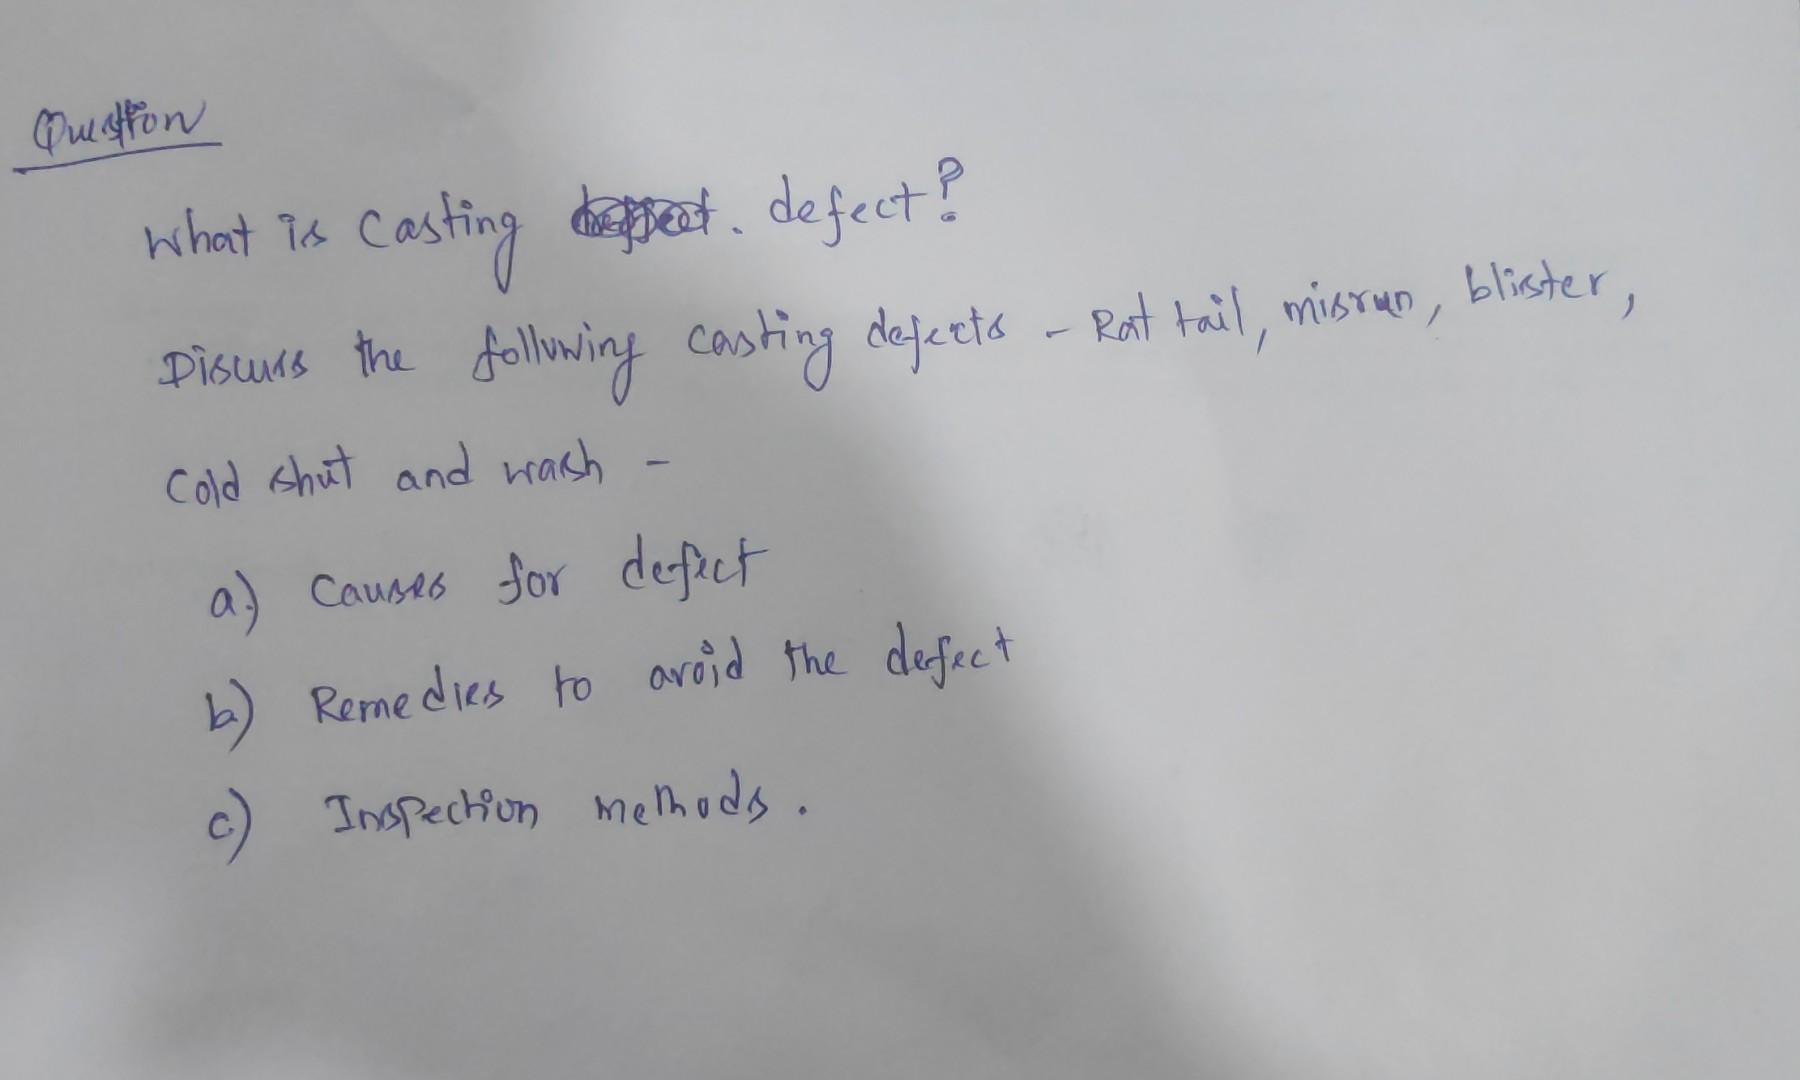 Question
What is Casting defect?
Discuss the following casting defects - Rat tail, misrun, blister,
Cold shut and wash -
a) Causes for defect
b) Remedies to avoid the defect
c) Inspection methods.